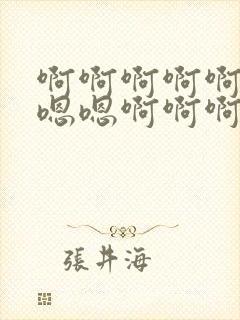 啊啊啊啊啊
嗯嗯啊啊啊
張井海